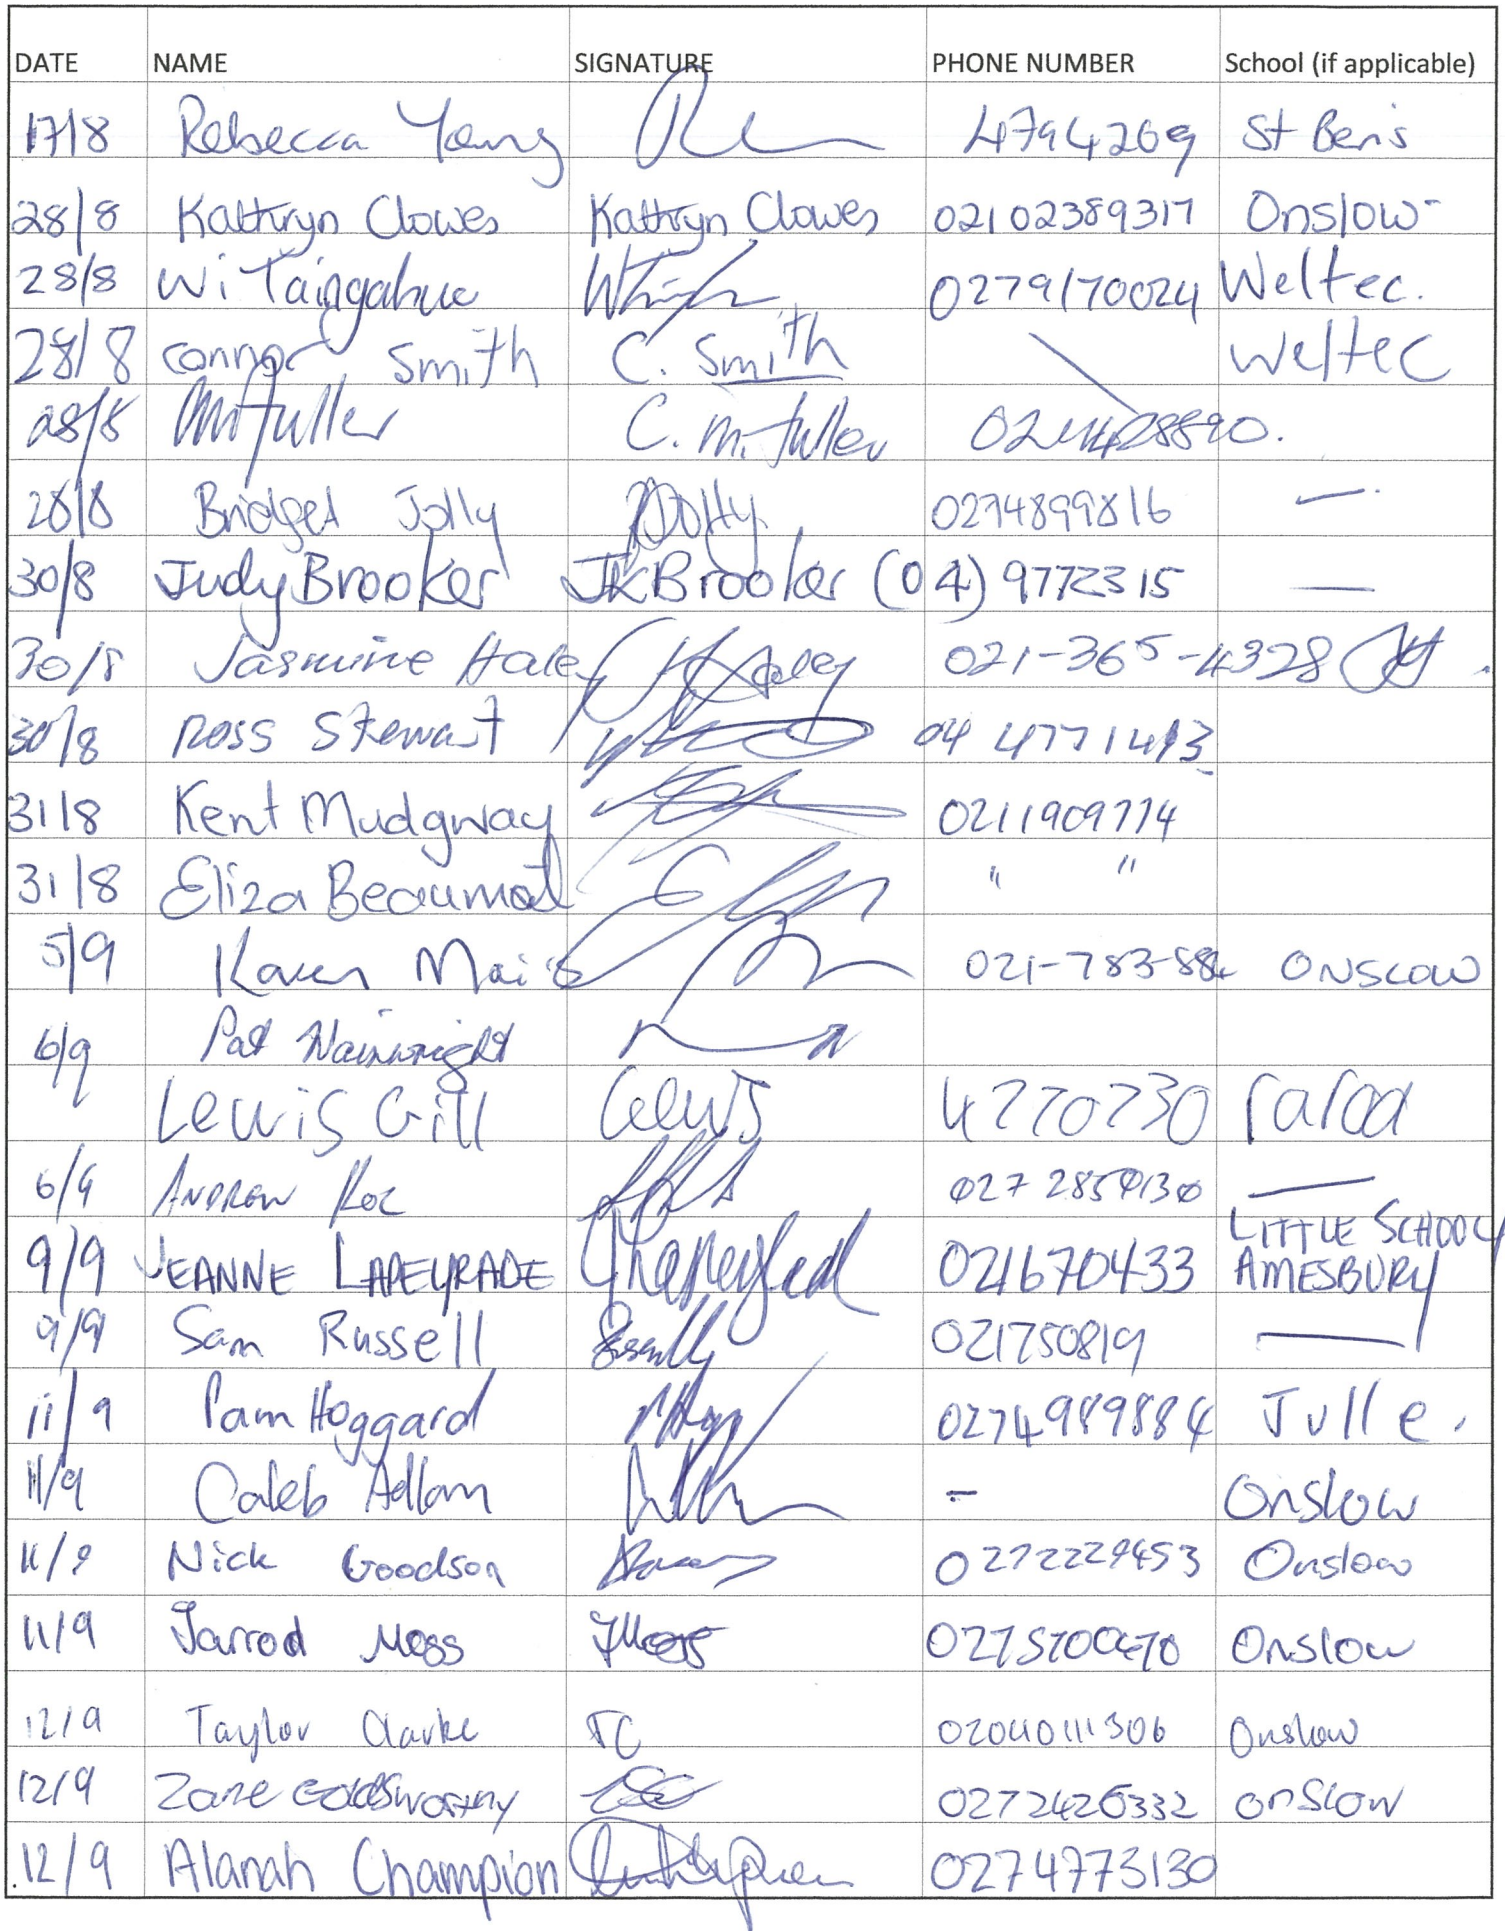 DATE NAME SIGNATURE PHONE NUMBER School (if applicable)
17/8 Rebecca Young 4794269 St Ben's
28/8 Kathryn Clowes Kathryn Clowes 02102389317 Onslow
28/8 Wi Taingahue 0279170024 Weltec.
28/8 Connor Smith C. Smith Weltec
28/8 Mfuller C. M. fuller
28/8 Bridget Jolly 0274899816 —
30/8 Judy Brooker JKBrooker (04) 9772315 —
30/8 Jasmine Haley 021-365-4328
30/8 Ross Stewart 04 4771413
31/8 Kent Mudgway 0211909774
31/8 Eliza Beaumont " "
5/9 Karen 021-783-884 ONSLOW
6/9 Pat Wainwright
Lewis Gill Lewis 4770730 raroa
6/9 ANDREW 027 2859130 —
9/9 JEANNE LAPEYRADE 0211670433 LITTLE SCHOOL
AMESBURY
9/9 Sam Russell 021750819 —
11/9 Pam Hoggard 0274989884
11/9 Caleb Adlam - Onslow
11/9 Nick Goodson 0272229453 Onslow
11/9 Jarrod Moss JMoss 0275700470 Onslow
12/9 Taylor Clarke TC 02040111306 Onslow
12/9 Zane Goldsworthy 0272426332 onSlow
12/9 Alanah Champion 0274773130